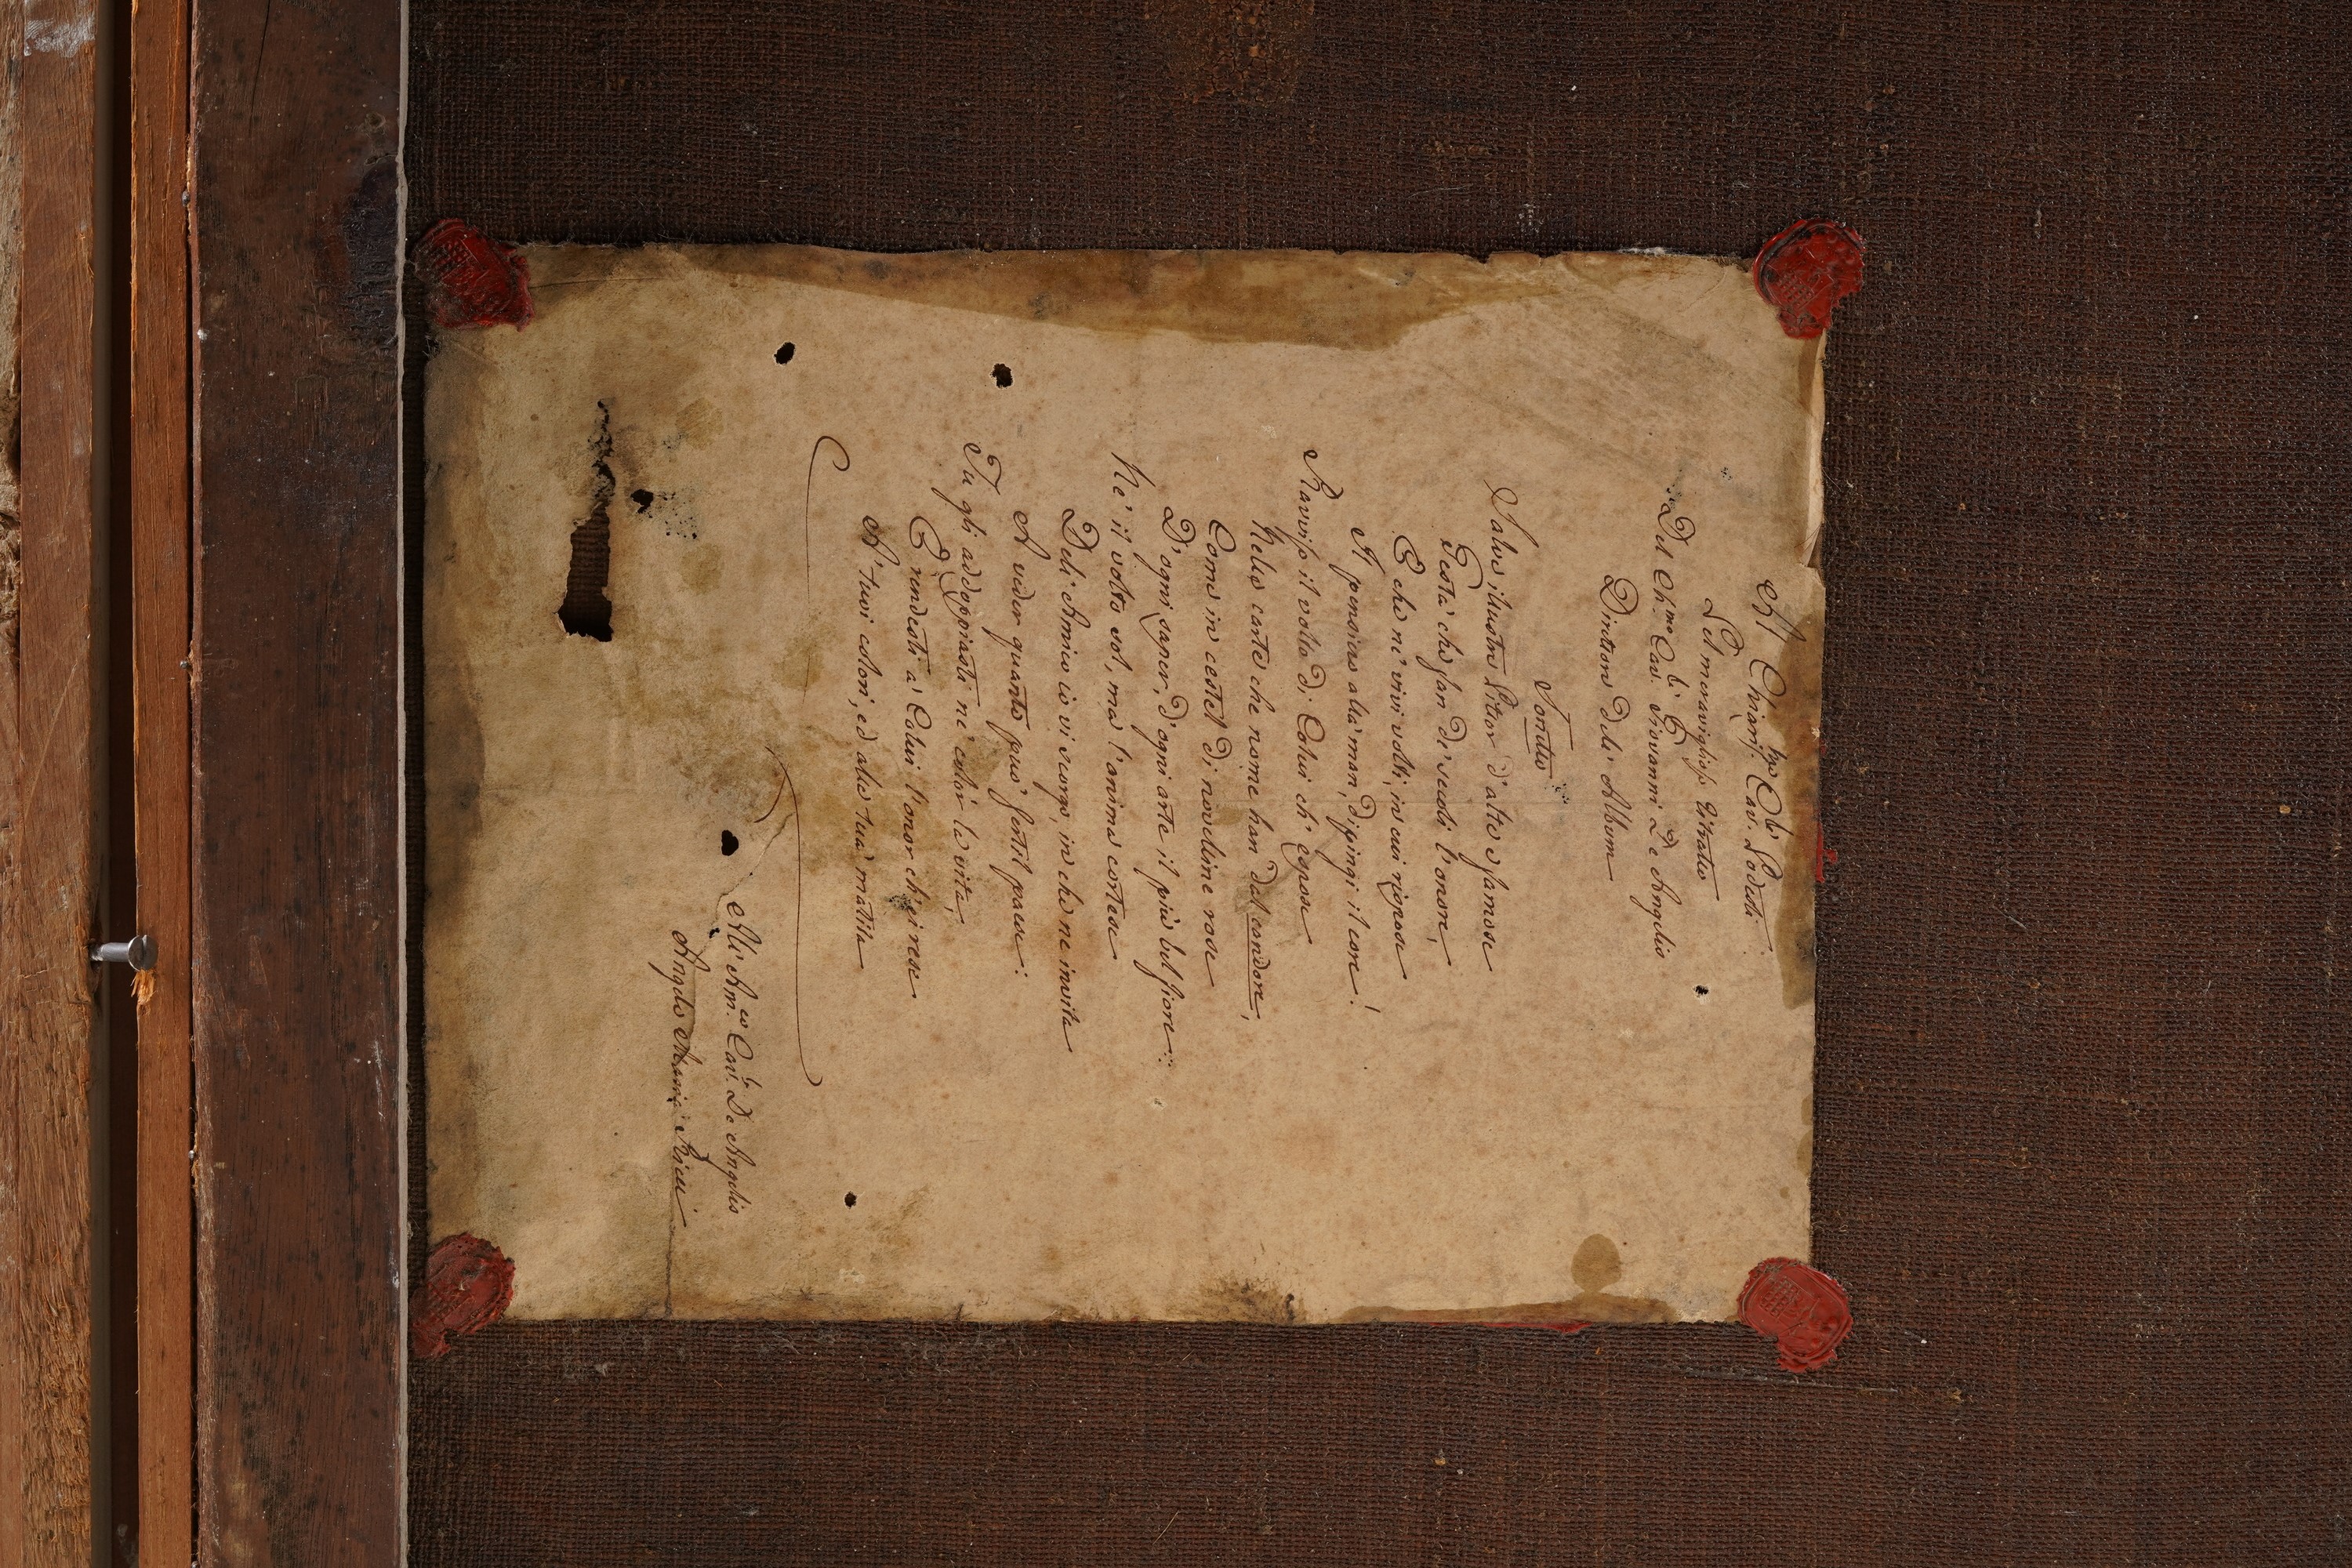 Al Chiariss.mo Cav.e Podesti
Pel meraviglioso Ritratto
Del Ch.mo Cav.e Giovanni De Angelis
Direttore dell' Album
Sonetto
Salve illustre Pittor d'alte e famose
Gesta che fan de' secoli l'onore,
E che ne' vivi volti, in cui ripose
I pensieri alta man, dipingi il core!
Ravviso il volto di Colui ch' espose
Nelle carte che nome han dal candore,
Come in cestel di novelline rose
D'ogni saper, d'ogni arte il più bel fiore:
Nè il volto sol, ma l'anima cortese
Dell' Amico io vi scorgo, in che ne invita
A veder quanto può gentil paese:
Tu gli addoppiasti ne' color la vita,
E rendesti a Colui l'onor ch'ei rese
A' tuoi colori, ed alla tua matita
All' Am.co Cav.e De Angelis
Angelo Maria Ricci